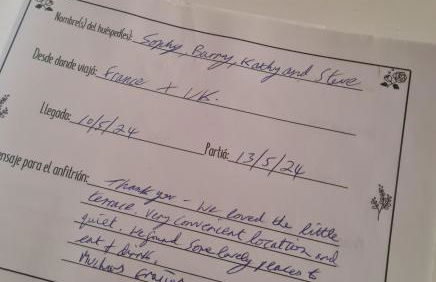 Nombre(s) del huésped(es): Sophy, Barry, Kathy and Steve
Desde donde viajó: France + UK.
Llegada: 10/5/24
Partió: 13/5/24
nsaje para el anfitrión: Thank you - We loved the little
terrace. Very convenient location and
quiet. We found some lovely places to
eat & drink.
Muchas Gracias